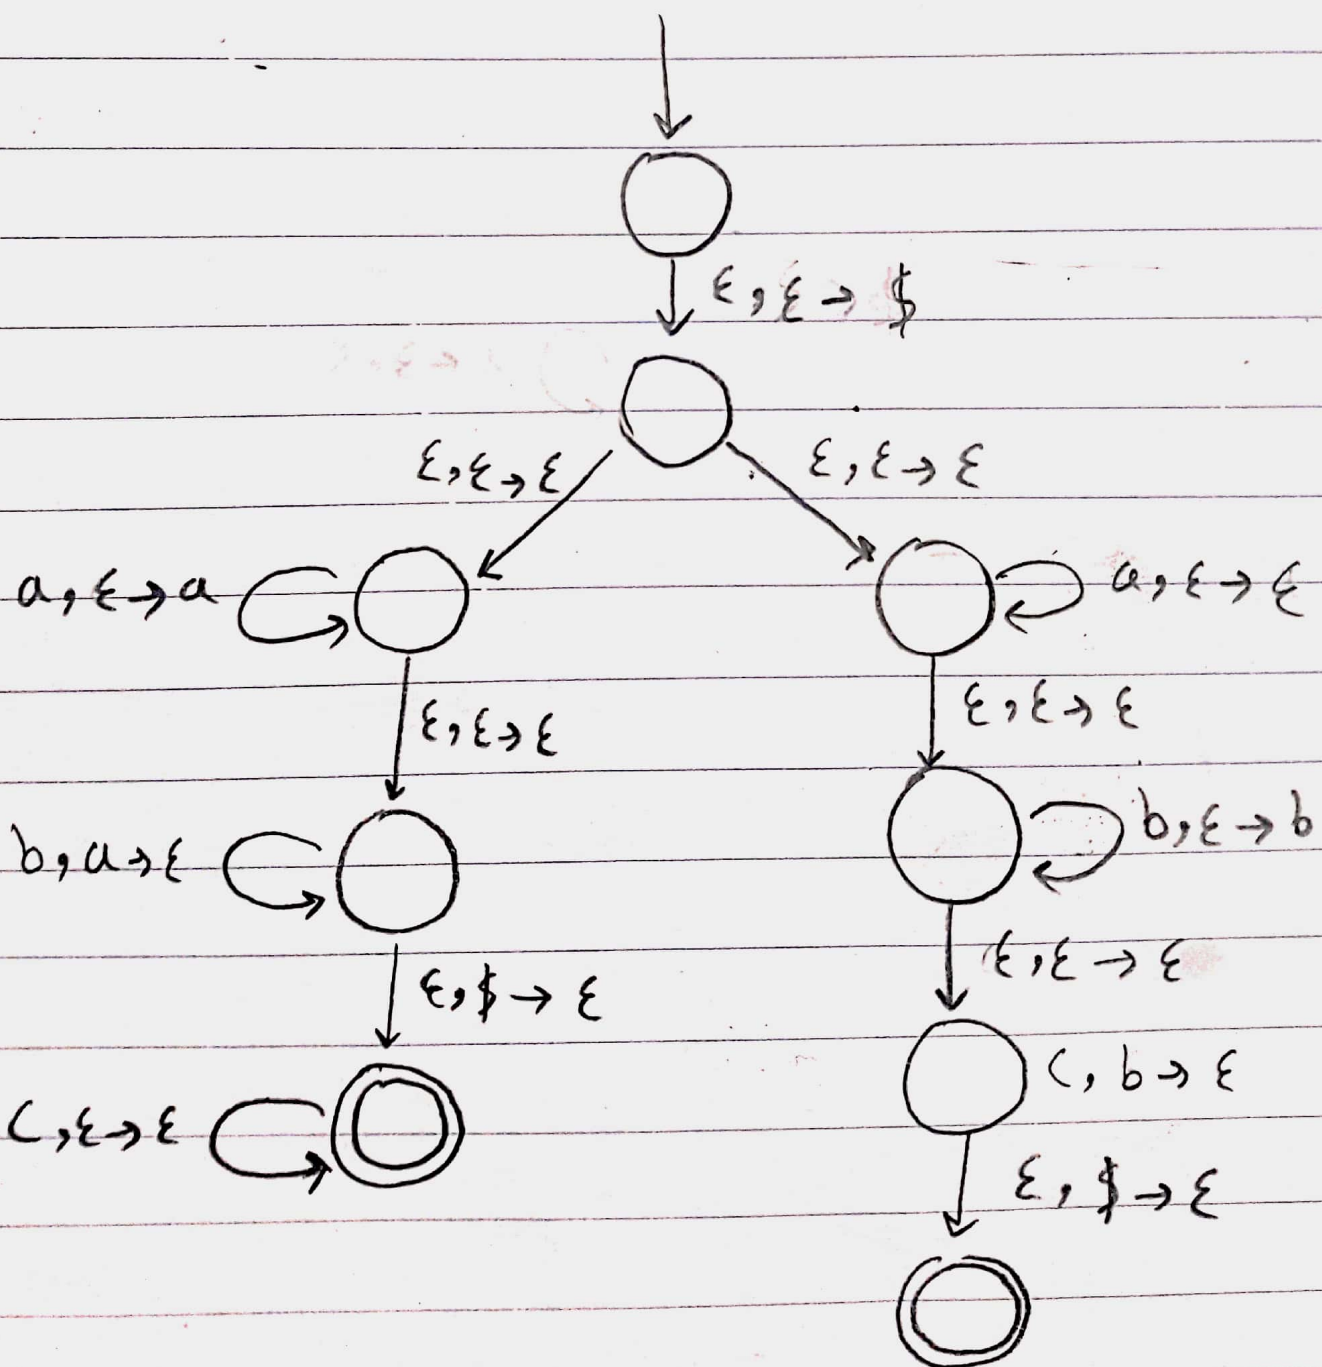 ε, ε → $
ε, ε → ε
ε, ε → ε
a, ε → a
a, ε → ε
ε, ε → ε
ε, ε → ε
b, a → ε
b, ε → b
ε, $ → ε
ε, ε → ε
c, ε → ε
c, b → ε
ε, $ → ε